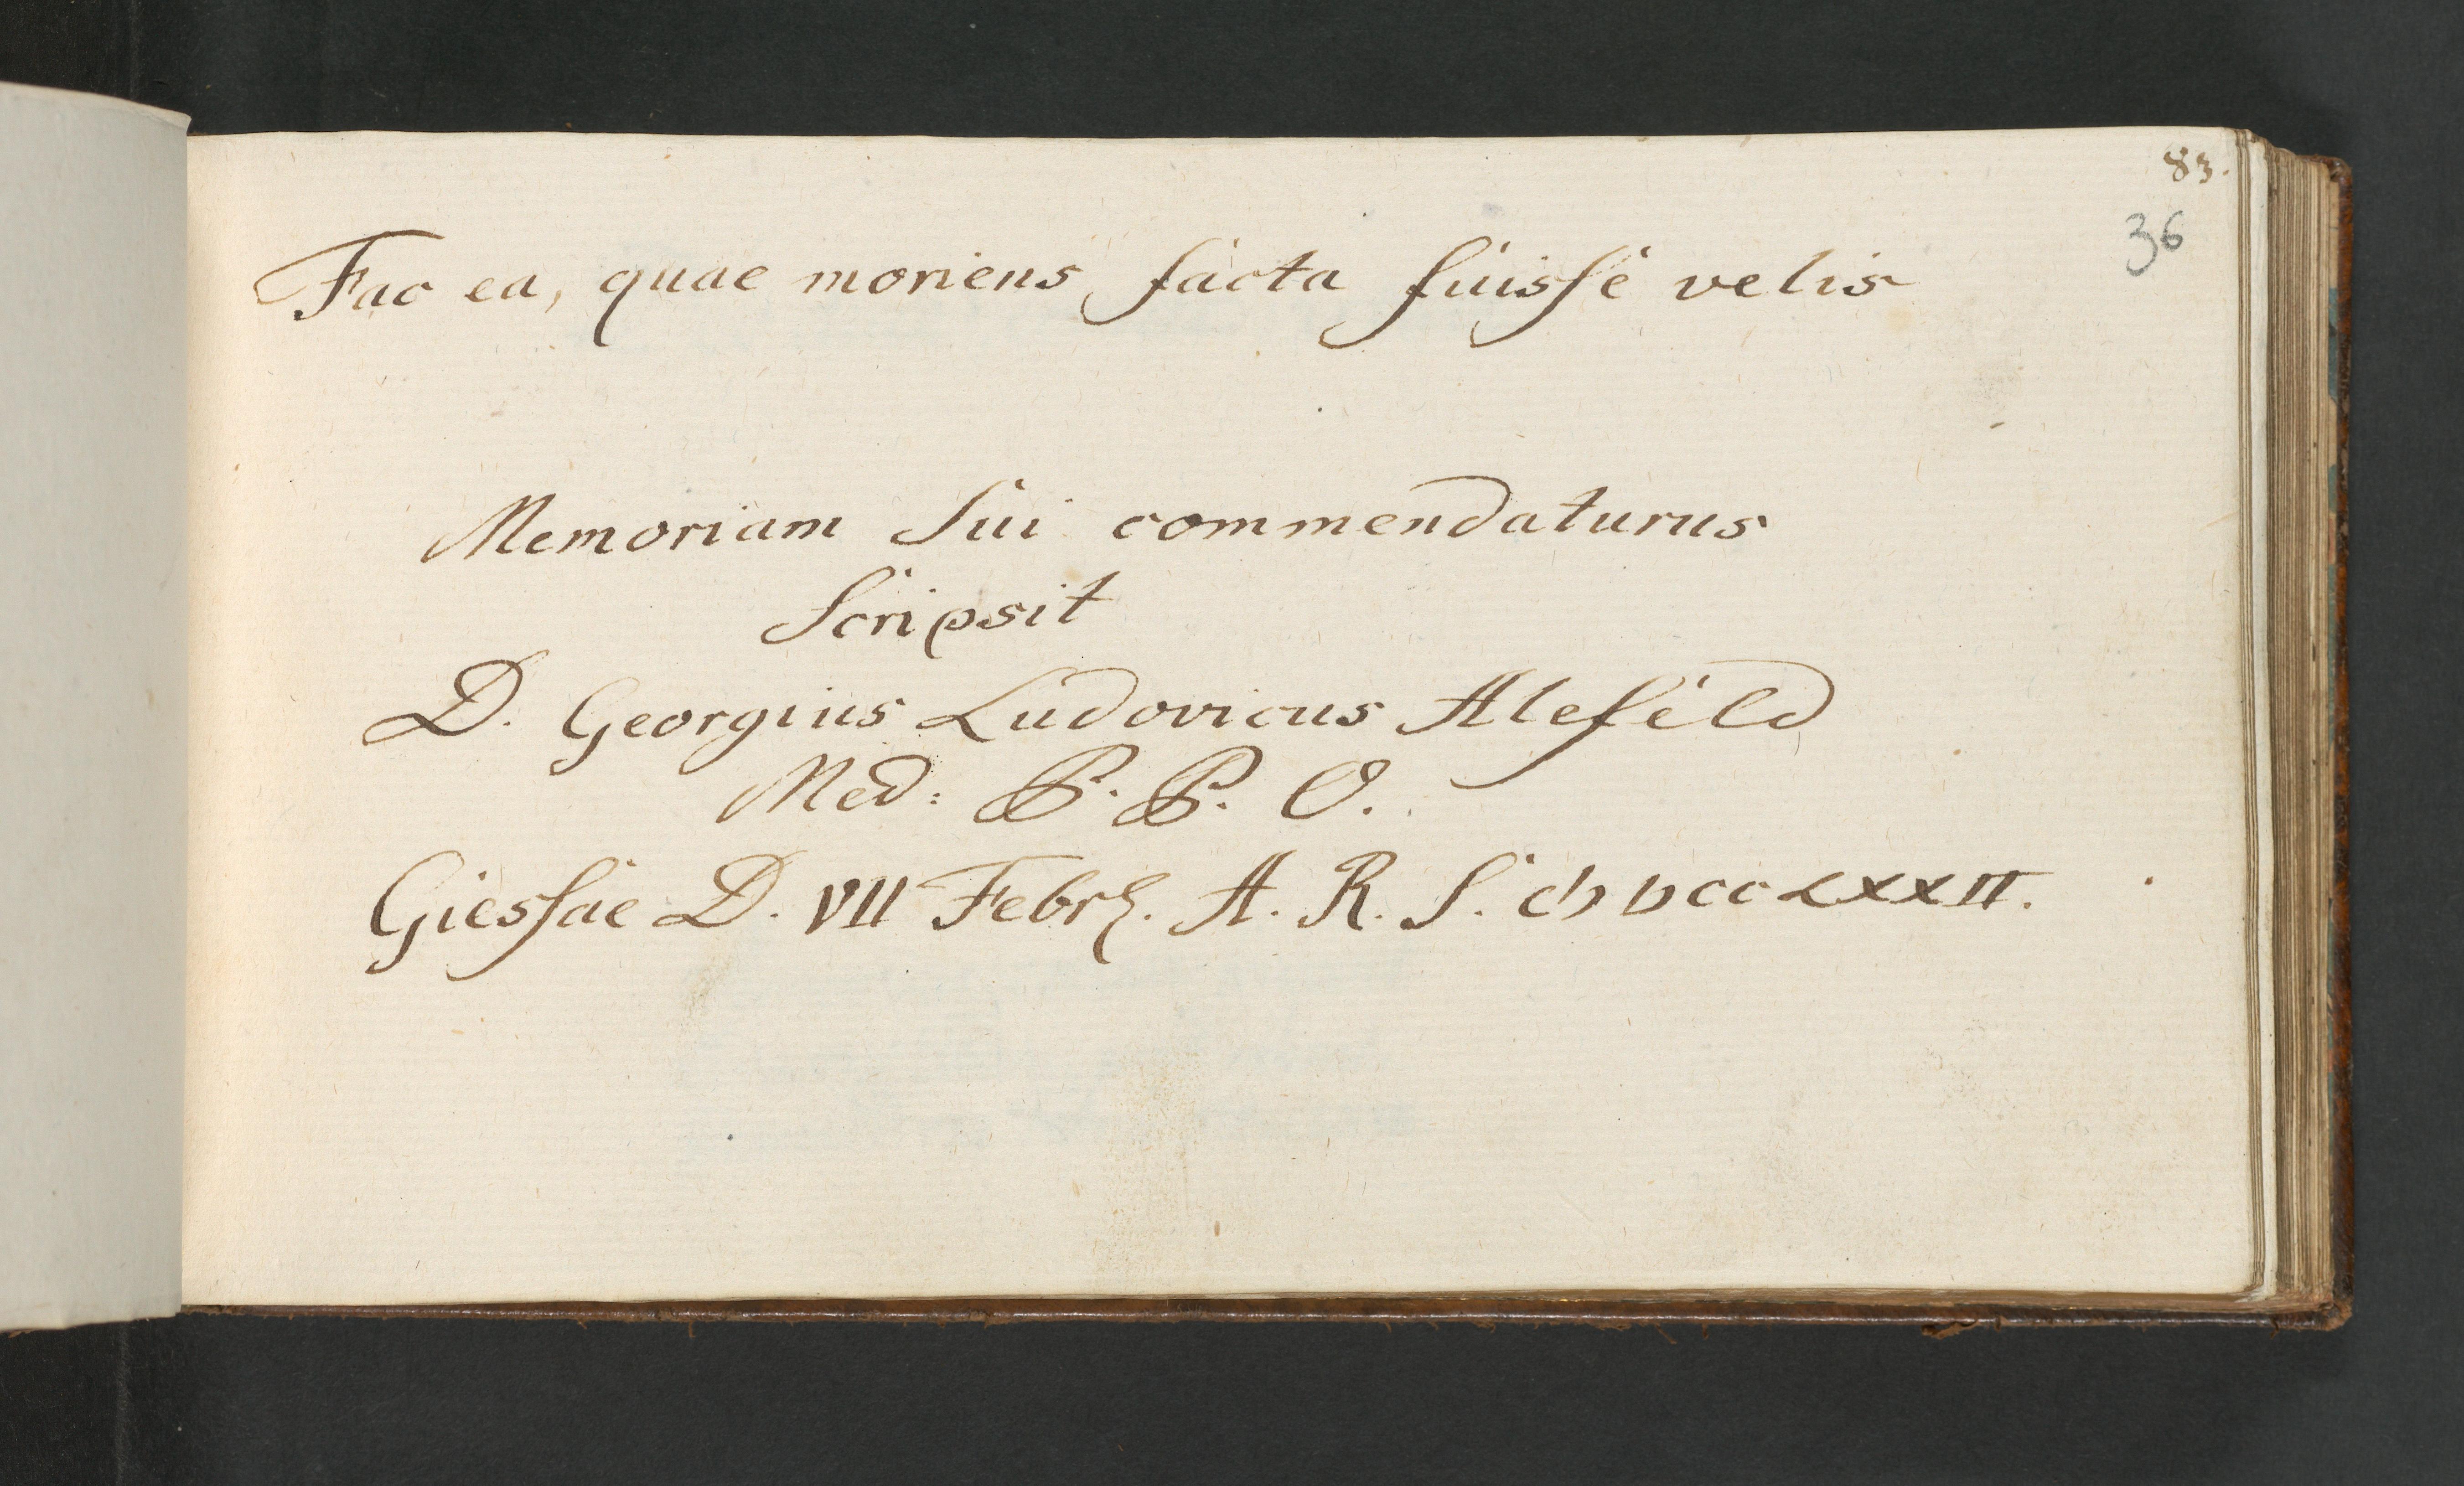 83.
36
Fac ea, quae moriens facta fuisse velis
Memoriam Sui commendaturus
Scripsit
D. Georgius Ludovicus Alefeld
Med: P. P. O.
Giessae D. VII Febr. A. R. S. cIↄ Iↄcc LXXXII.